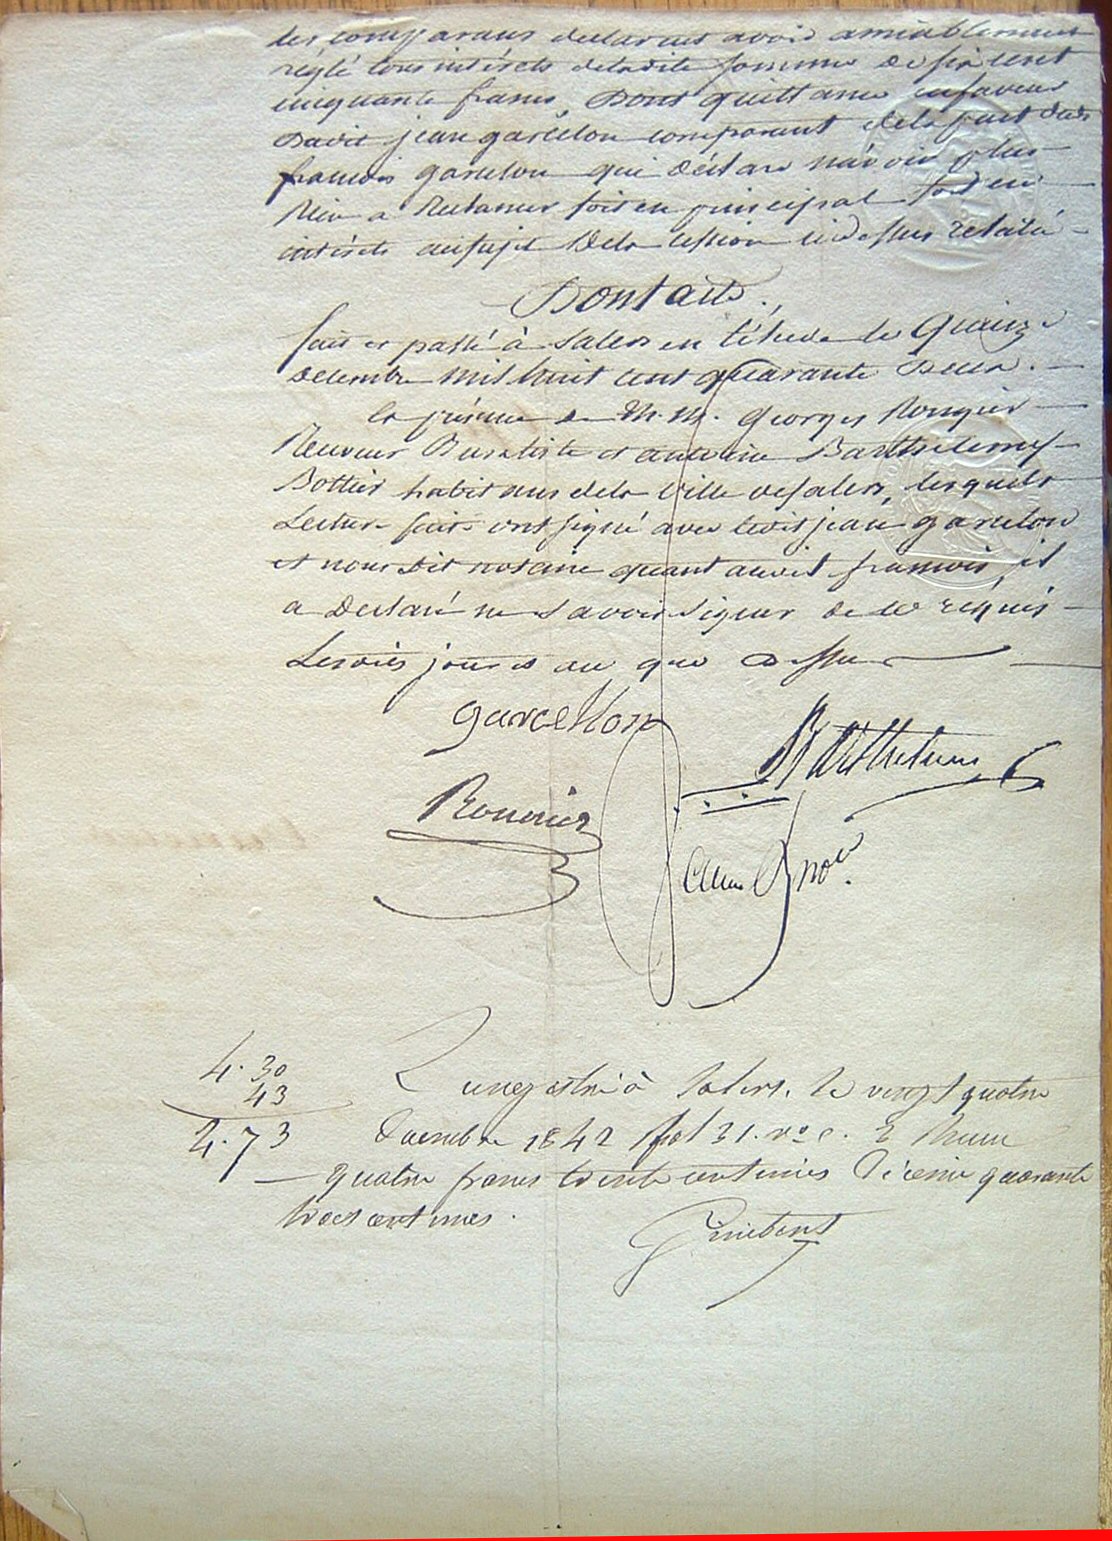 les comparans declarent avoir amiablement
réglé tous intérets deladite somme de six cent
cinquante francs, Dont quittance enfaveur
Dudit jean garcelon comparant dela part dudit
francois garcelon qui déclare n'avoir plus
Rien a Réclamer soit en principal soit en
intérets ausujet Dela cession cidessus relatée
Dont acte.
fait et passé à Salers en l'étude le Quinze
Decembre mil huit cent quarante Deux.
En présence de M.M. Georges Rougier
Receveur Buraliste et antoine Barthelemy
Bottier habitans dela Ville de salers, lesquels
Lecture faite ont signé avec ledit jean garcelon
et nous dit notaire quant audit francois, il
a declaré ne savoir signer de ce requis
Lesdits jour et an que Dessus
garcellon
Barthelemy
Rougier
not.
4.30
43
4.73
Enregistré à Salers, le vingt quatre
Décembre 1842 fol 31. vo c. 2 Recu
quatre francs trente centimes Décime quarante
trois centimes.